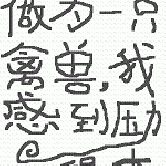 做为一只
禽兽,我
感到